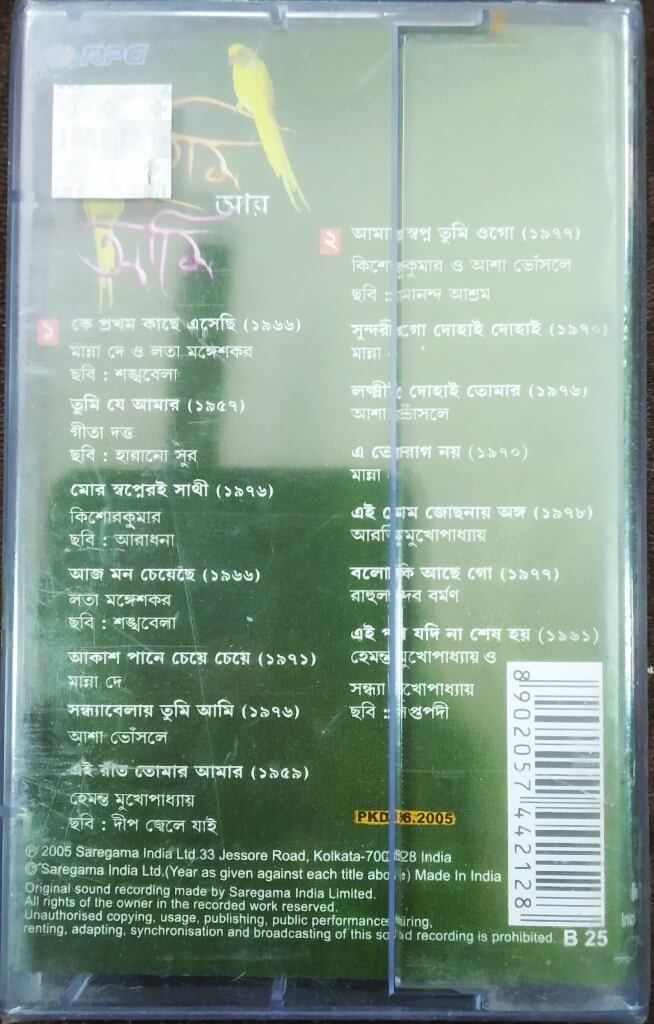 RPG
আর
আমি
১ কে প্রথম কাছে এসেছি (১৯৬৬)
মান্না দে ও লতা মঙ্গেশকর
ছবি : শঙ্খবেলা
তুমি যে আমার (১৯৫৭)
গীতা দত্ত
ছবি : হারানো সুর
মোর স্বপ্নেরই সাথী (১৯৭৬)
কিশোরকুমার
ছবি : আরাধনা
আজ মন চেয়েছে (১৯৬৬)
লতা মঙ্গেশকর
ছবি : শঙ্খবেলা
আকাশ পানে চেয়ে চেয়ে (১৯৭১)
মান্না দে
সন্ধ্যাবেলায় তুমি আমি (১৯৭৬)
আশা ভোঁসলে
এই রাত তোমার আমার (১৯৫৯)
হেমন্ত মুখোপাধ্যায়
ছবি : দীপ জ্বেলে যাই
২ আমার স্বপ্ন তুমি ওগো (১৯৭৭)
কিশোরকুমার ও আশা ভোঁসলে
ছবি : আনন্দ আশ্রম
সুন্দরী ওগো দোহাই দোহাই (১৯৭০)
মান্না
লক্ষ্মীটি দোহাই তোমার (১৯৭৬)
আশা ভোঁসলে
এ তো রাগ নয় (১৯৭০)
মান্না
এই মোম জোছনায় অঙ্গ (১৯৭৮)
আরতি মুখোপাধ্যায়
বলো কি আছে গো (১৯৭৭)
রাহুল দেব বর্মণ
এই পথ যদি না শেষ হয় (১৯৬১)
হেমন্ত মুখোপাধ্যায় ও
সন্ধ্যা মুখোপাধ্যায়
ছবি : সপ্তপদী
8902057442128
PKD 6.2005
℗ 2005 Saregama India Ltd.33 Jessore Road, Kolkata-700 028 India
© Saregama India Ltd.(Year as given against each title above) Made In India
Original sound recording made by Saregama India Limited.
All rights of the owner in the recorded work reserved.
Unauthorised copying, usage, publishing, public performance, hiring,
renting, adapting, synchronisation and broadcasting of this sound recording is prohibited. B 25